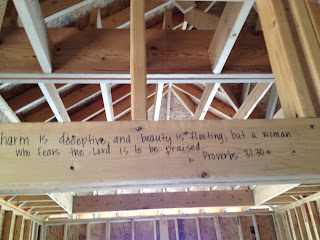 harm is deceptive, and beauty is fleeting, but a woman
who fears the Lord is to be praised.
Proverbs 31:30